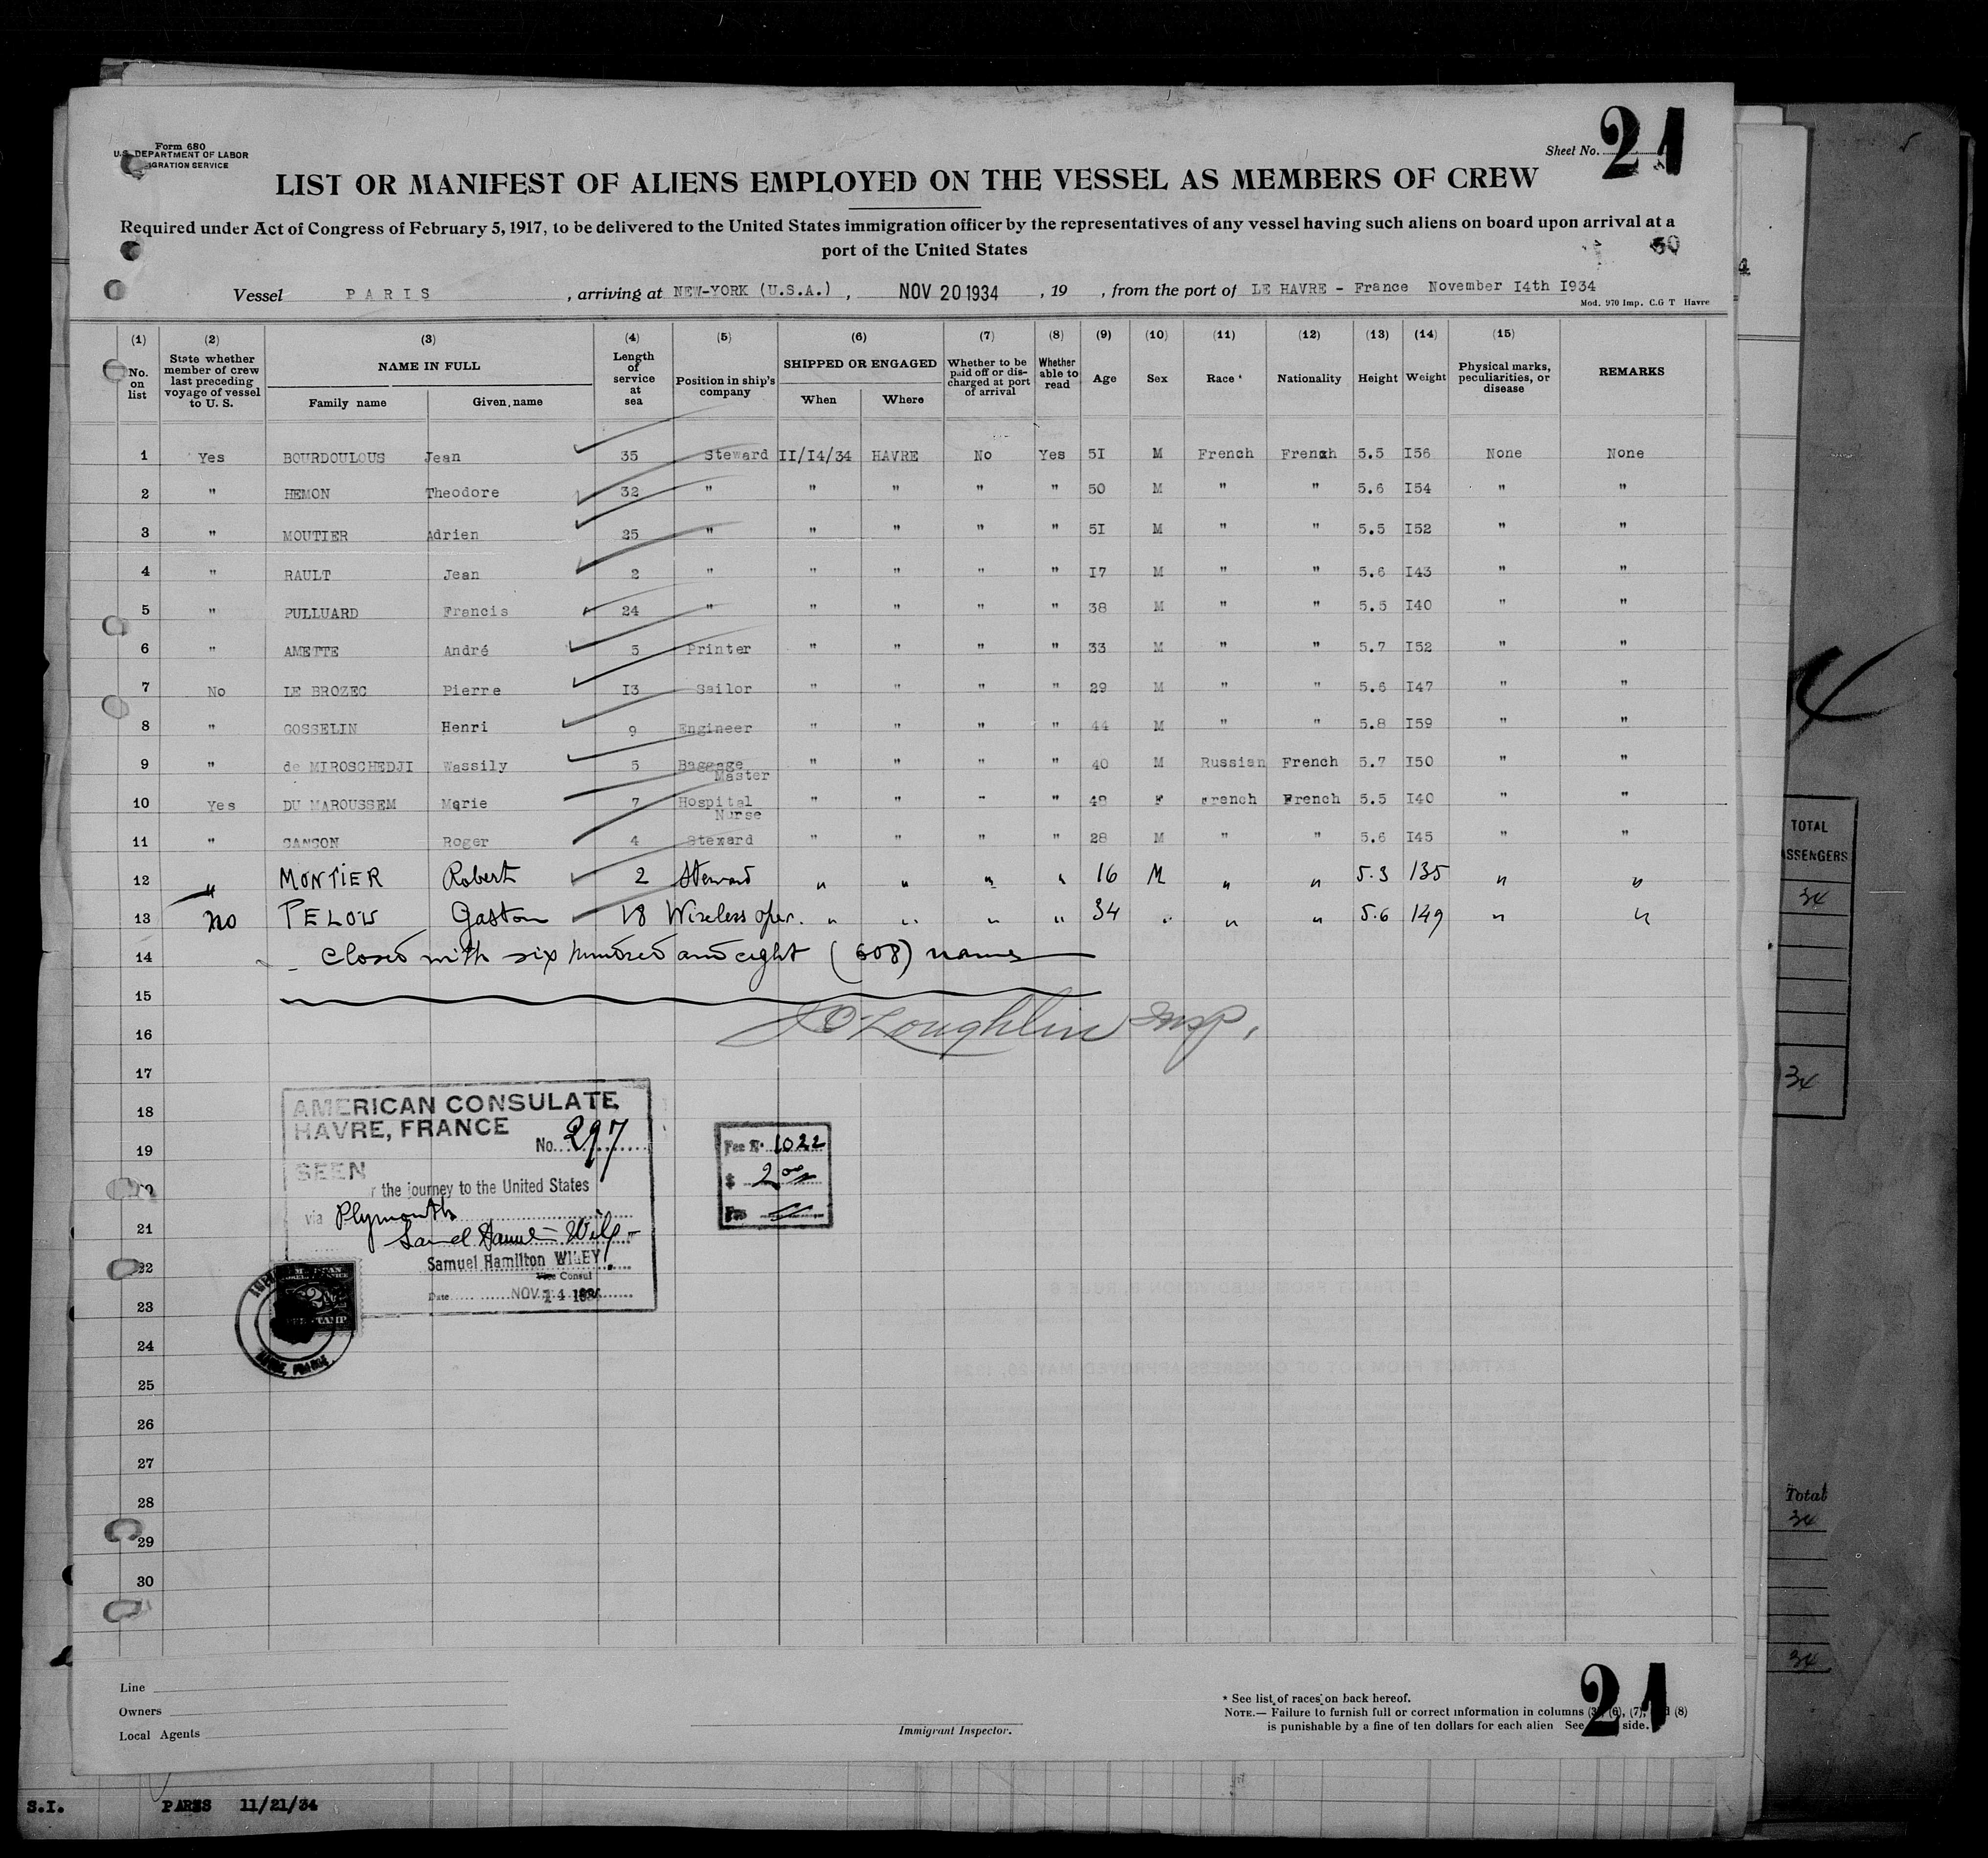 Form 680
U.S. DEPARTMENT OF LABOR
IGRATION SERVICE
Sheet No. 21
LIST OR MANIFEST OF ALIENS EMPLOYED ON THE VESSEL AS MEMBERS OF CREW
Required under Act of Congress of February 5, 1917, to be delivered to the United States immigration officer by the representatives of any vessel having such aliens on board upon arrival at a
port of the United States
Vessel PARIS, arriving at NEW-YORK (U.S.A.), NOV 20 1934, 19 , from the port of LE HAVRE - France November I4th I934
Mod. 970 Imp. C.G T Havre
(1) (2) (3) (4) (5) (6) (7) (8) (9) (10) (11) (12) (13) (14) (15)
No. on list State whether member of crew last preceding voyage of vessel to U. S. NAME IN FULL Family name Given name Length of service at sea Position in ship's company SHIPPED OR ENGAGED When Where Whether to be paid off or discharged at port of arrival Whether able to read Age Sex Race * Nationality Height Weight Physical marks, peculiarities, or disease REMARKS
1 Yes BOURDOULOUS Jean 35 Steward II/I4/34 HAVRE No Yes 5I M French French 5.5 I56 None None
2 " HEMON Theodore 32 " " " " " 50 M " " 5.6 I54 " "
3 " MOUTIER Adrien 25 " " " " " 5I M " " 5.5 I52 " "
4 " RAULT Jean 2 " " " " " I7 M " " 5.6 I43 " "
5 " PULLUARD Francis 24 " " " " " 38 M " " 5.5 I40 " "
6 " AMETTE André 5 Printer " " " " 33 M " " 5.7 I52 " "
7 No LE BROZEC Pierre I3 Sailor " " " " 29 M " " 5.6 I47 " "
8 " GOSSELIN Henri 9 Engineer " " " " 44 M " " 5.8 I59 " "
9 " de MIROSCHEDJI Wassily 5 Baggage Master " " " " 40 M Russian French 5.7 I50 " "
10 Yes DU MAROUSSEM Marie 7 Hospital Nurse " " " " 48 F French French 5.5 I40 " "
11 " SANSON Roger 4 Steward " " " " 28 M " " 5.6 I45 " "
12 " MONTIER Robert 2 Steward " " " " 16 M " " 5.3 135 " "
13 No PELOW Gaston 18 Wireless oper. " " " " 34 " " " 5.6 149 " "
14 closed with six hundred and eight (608) names
15
16 O'Loughlin Insp.
17
18
19
21
22
23
24
25
26
27
28
29
30
AMERICAN CONSULATE
HAVRE, FRANCE
No. 297
SEEN
r the journey to the United States
via Plymouth
Samuel Hamilton WILEY
Vice Consul
Date NOV. 14 1934
Fee No. 1022
$ 2.00
HAVRE, FRANCE
Line
Owners
Local Agents
Immigrant Inspector.
* See list of races on back hereof.
NOTE.— Failure to furnish full or correct information in columns (3), (6), (7), d (8)
is punishable by a fine of ten dollars for each alien See side.
21
S.I. PARIS 11/21/34
TOTAL
ASSENGERS
34
34
Total
34
34